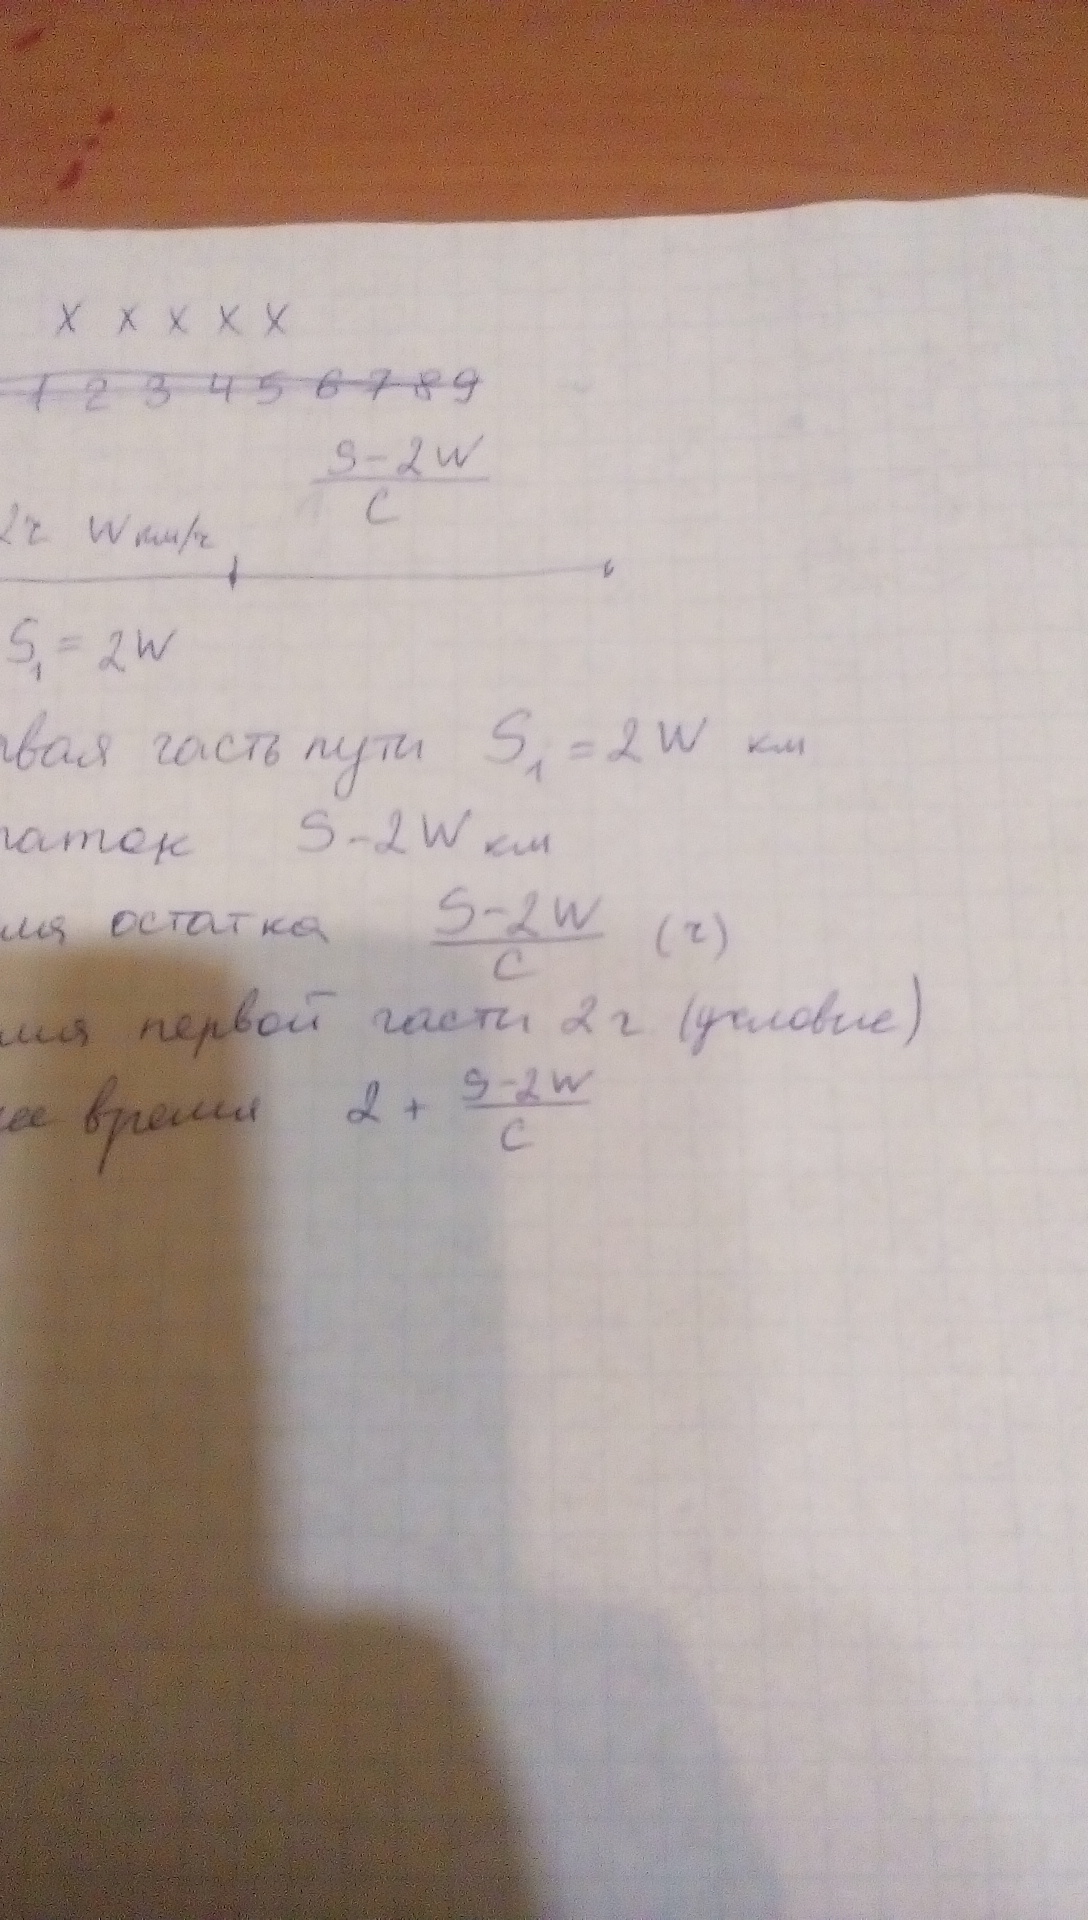 x x x x x
1 2 3 4 5 6 7 8 9
S-2W
C
2ч W км/ч
S₁ = 2W
рвая часть пути S₁ = 2W км
таток S-2W км
емя остатка S-2W/C (ч)
емя первой части 2ч (условие)
щее время 2 + S-2W/C